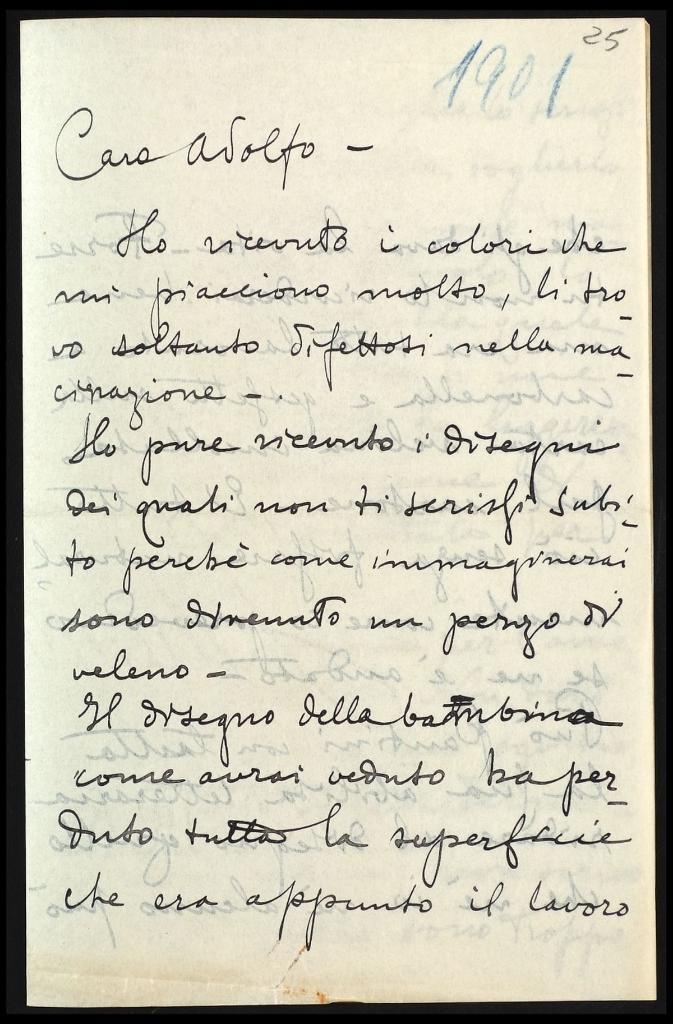 25
1901
Caro Adolfo —
Ho ricevuto i colori che
mi piacciono molto, li tro-
vo soltanto difettosi nella ma-
cinazione —.
Ho pure ricevuto i disegni
dei quali non ti scrissi subi-
to perchè come immaginerai
sono divenuto un pezzo di
veleno —
Il disegno della bambina
come avrai veduto ha per-
duto tutta la superficie
che era appunto il lavoro